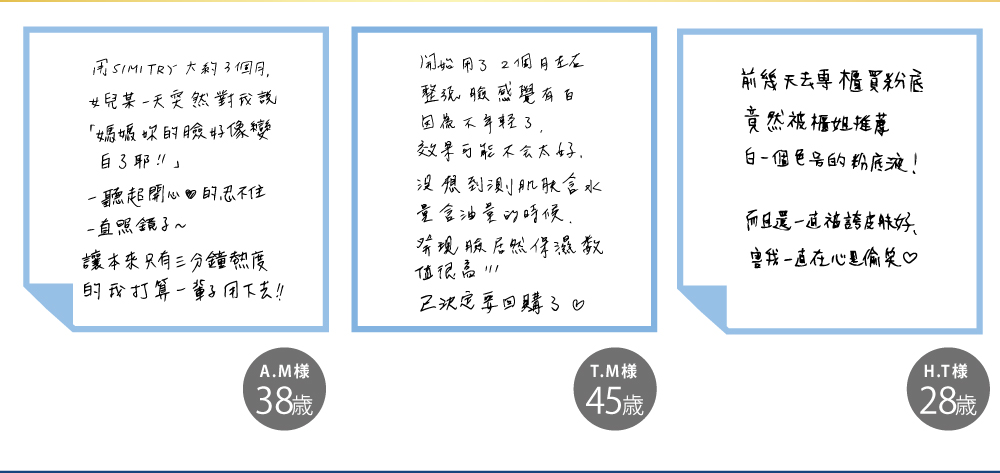 用SIMITRY大約3個月,
女兒某一天突然對我說
「媽媽妳的臉好像變
白了耶!!」
一聽超開心♥的忍不住
一直照鏡子~
讓本來只有三分鐘熱度
的我打算一輩子用下去!!
A.M様
38歳
開始用了2個月左右
整張臉感覺有白
因為不年輕了,
效果可能不会太好.
沒想到測肌肤含水
量含油量的時候.
發現臉居然保濕数
值很高!!!
已決定要回購了♡
T.M様
45歳
前幾天去專櫃買粉底
竟然被櫃姐推薦
白一個色号的粉底液!
而且還一直被誇皮肤好,
害我一直在心里偷笑♡
H.T様
28歳